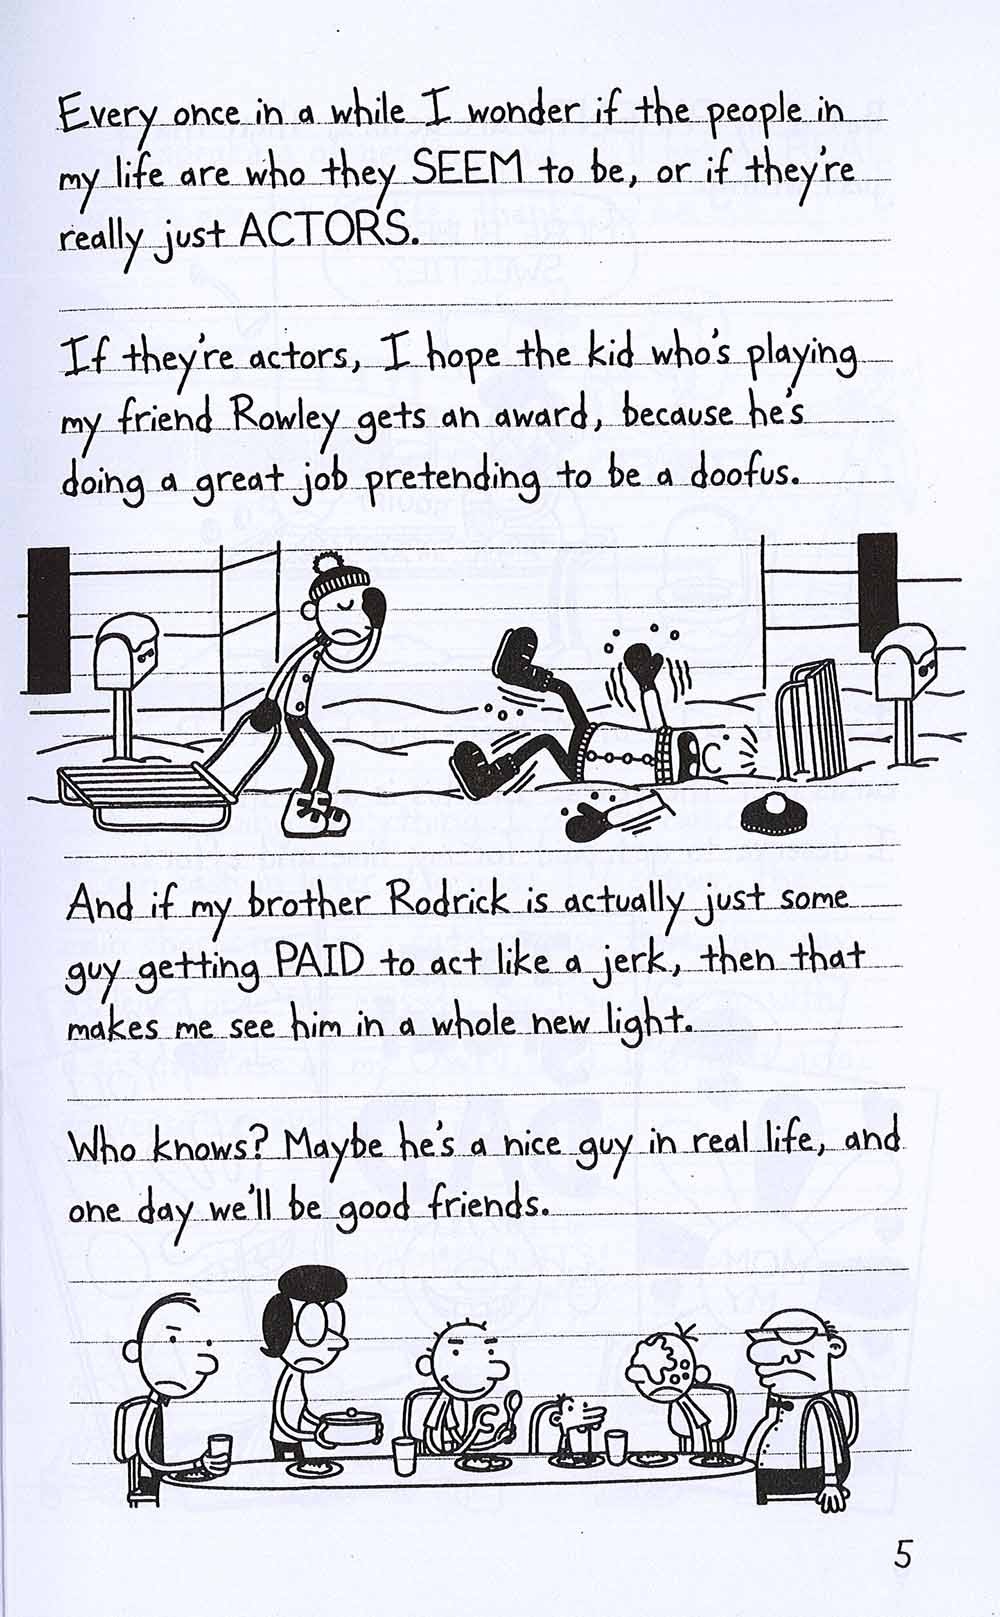 Every once in a while I wonder if the people in
my life are who they SEEM to be, or if they're
really just ACTORS.
If they're actors, I hope the kid who's playing
my friend Rowley gets an award, because he's
doing a great job pretending to be a doofus.
And if my brother Rodrick is actually just some
guy getting PAID to act like a jerk, then that
makes me see him in a whole new light.
Who knows? Maybe he's a nice guy in real life, and
one day we'll be good friends.
5